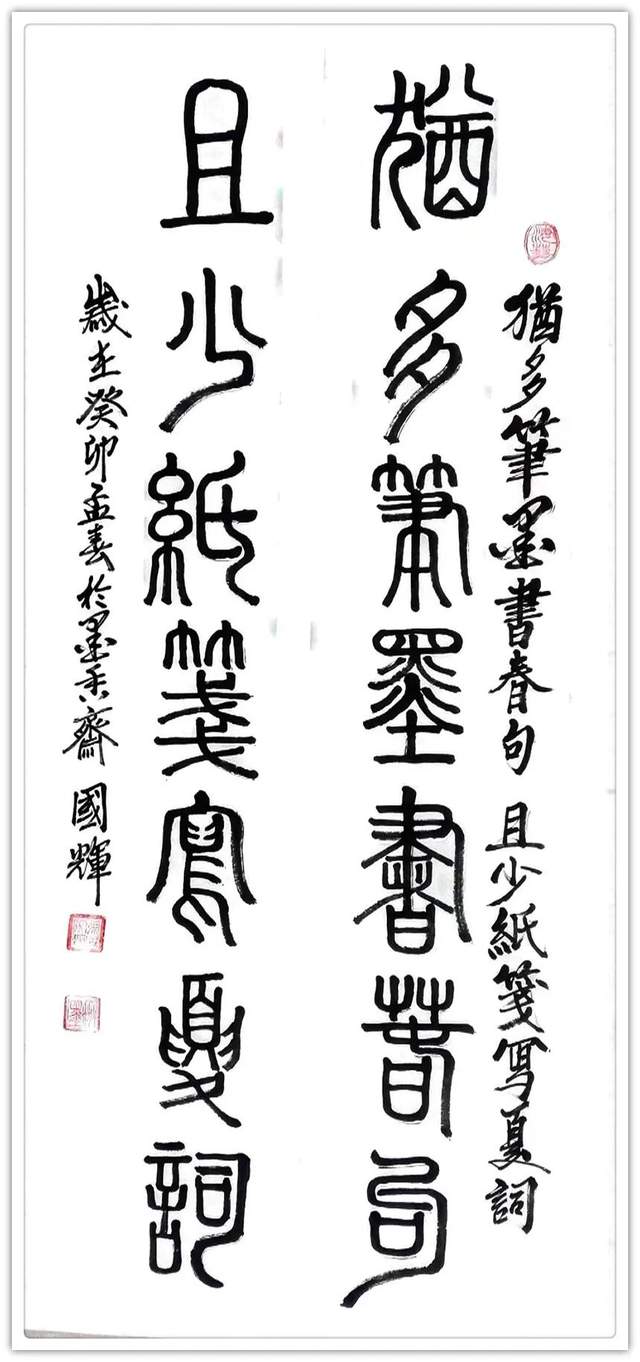 猶多筆墨書春句 且少紙箋寫夏詞
猶多筆墨書春句
且少紙箋寫夏詞
歲在癸卯孟春於墨香齋 國輝